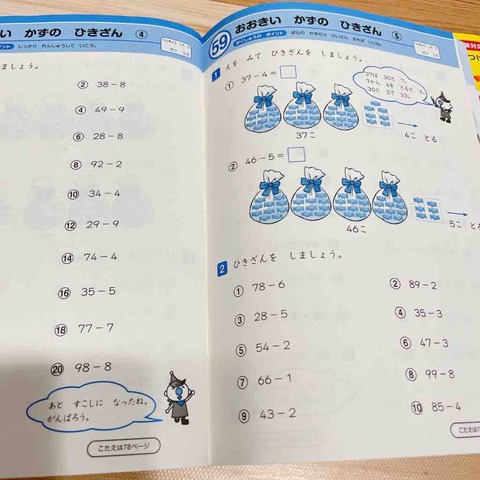 い かずの ひきざん ④
しっかり れんしゅうして いこう。
しましょう。
② 38－8
④ 49－9
⑥ 28－8
⑧ 92－2
⑩ 34－4
⑫ 29－9
⑭ 74－4
⑯ 35－5
⑱ 77－7
⑳ 98－8
あと すこしに なったね。
がんばろう。
こたえは78ページ
59 おおきい かずの ひきざん ⑤
1 えを みて ひきざんを しましょう。
① 37－4＝
37は 30と 7。
7から 4を とると 3。
30と 3で 33。
37こ
4こ とる
② 46－5＝
46こ
5こ とる
2 ひきざんを しましょう。
① 78－6
② 89－2
③ 28－5
④ 35－3
⑤ 54－2
⑥ 47－3
⑦ 66－1
⑧ 99－8
⑨ 43－2
⑩ 85－4
こたえは7